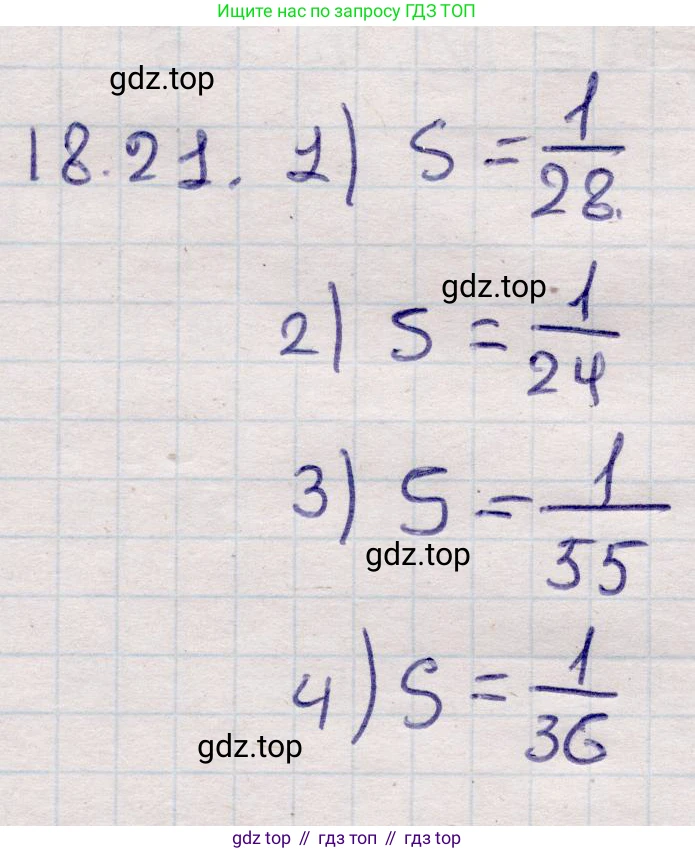 Ищите нас по запросу ГДЗ ТОП
gdz.top
18.21. 1) S = 1/28.
gdz.top
2) S = 1/24
3) S = 1/55
gdz.top
4) S = 1/36
gdz.top
gdz top // гдз топ // gdz.top